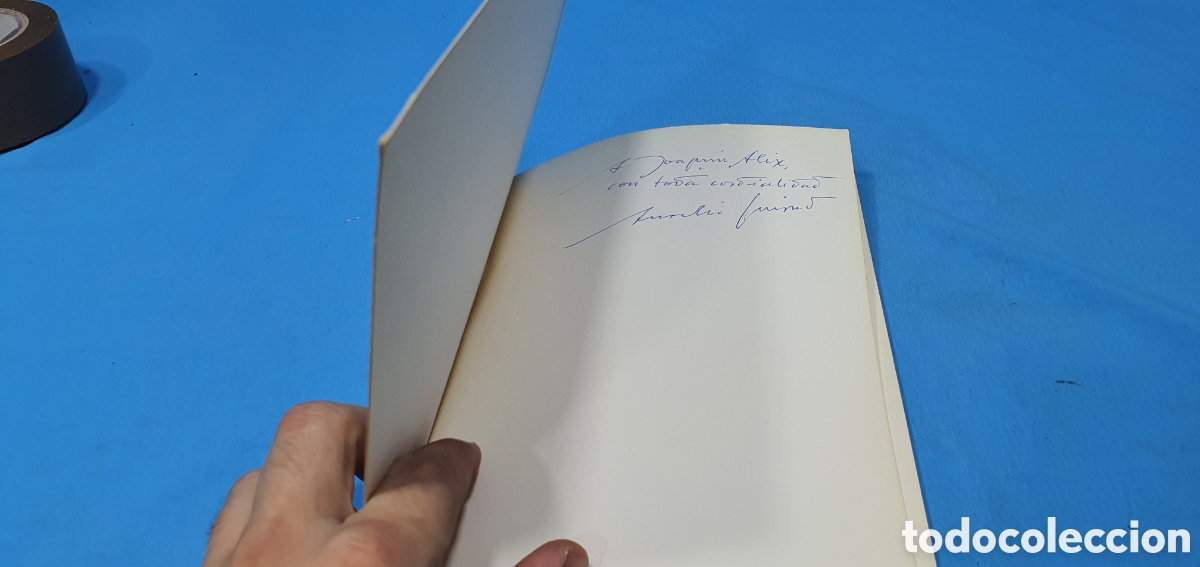 A Joaquín Alix,
con toda cordialidad
Aurelio Guirao
todocoleccion